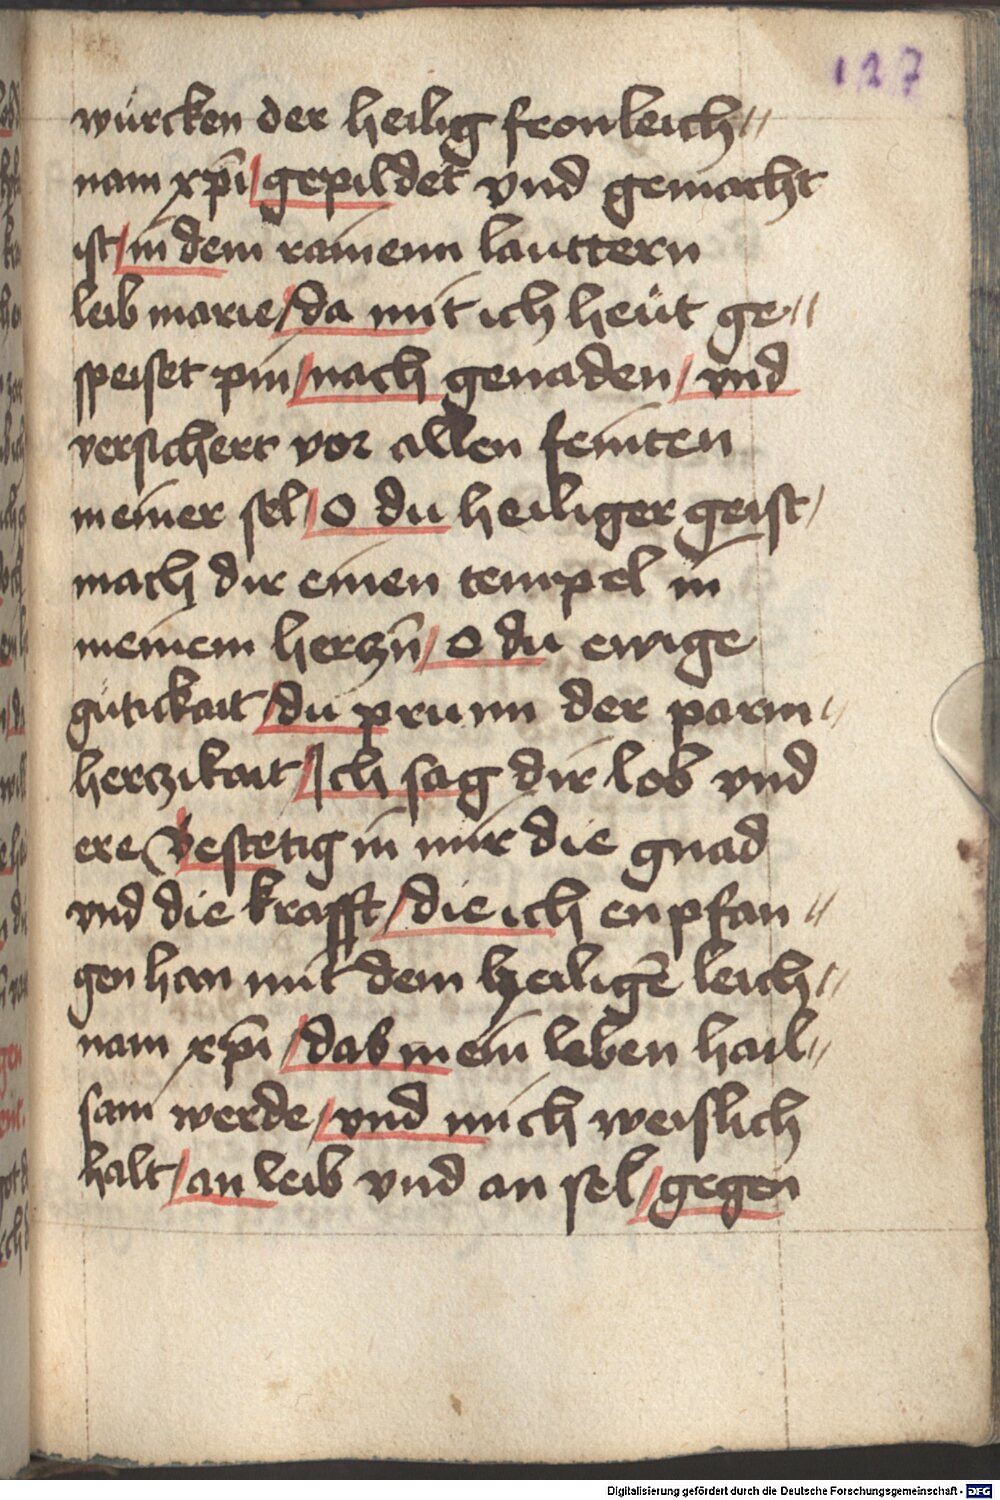 127
würcken der heilig fronleich//
nam xp̄i/gepildet vnd gemacht
ist/in dem rainenn lauttern
leib marie/da mit ich heüt ge//
speiset pin/nach genaden/vnd
versichert vor allen feinten
meiner sel/O du heiliger geist/
mach dir einen tempel in
meinem herczn̄/O du ewige
gütickait/du prunn der parm//
herczikait/Ich sag dir lob vnd
ere Bestetig in mir die gnad
vnd die krafft/die ich enpfan//
gen han mit dem heiligē leich//
nam xp̄i/das mein leben hail//
sam werde/vnd mich weislich
halt/an leib vnd an sel/gegen
Digitalisierung gefördert durch die Deutsche Forschungsgemeinschaft - DFG